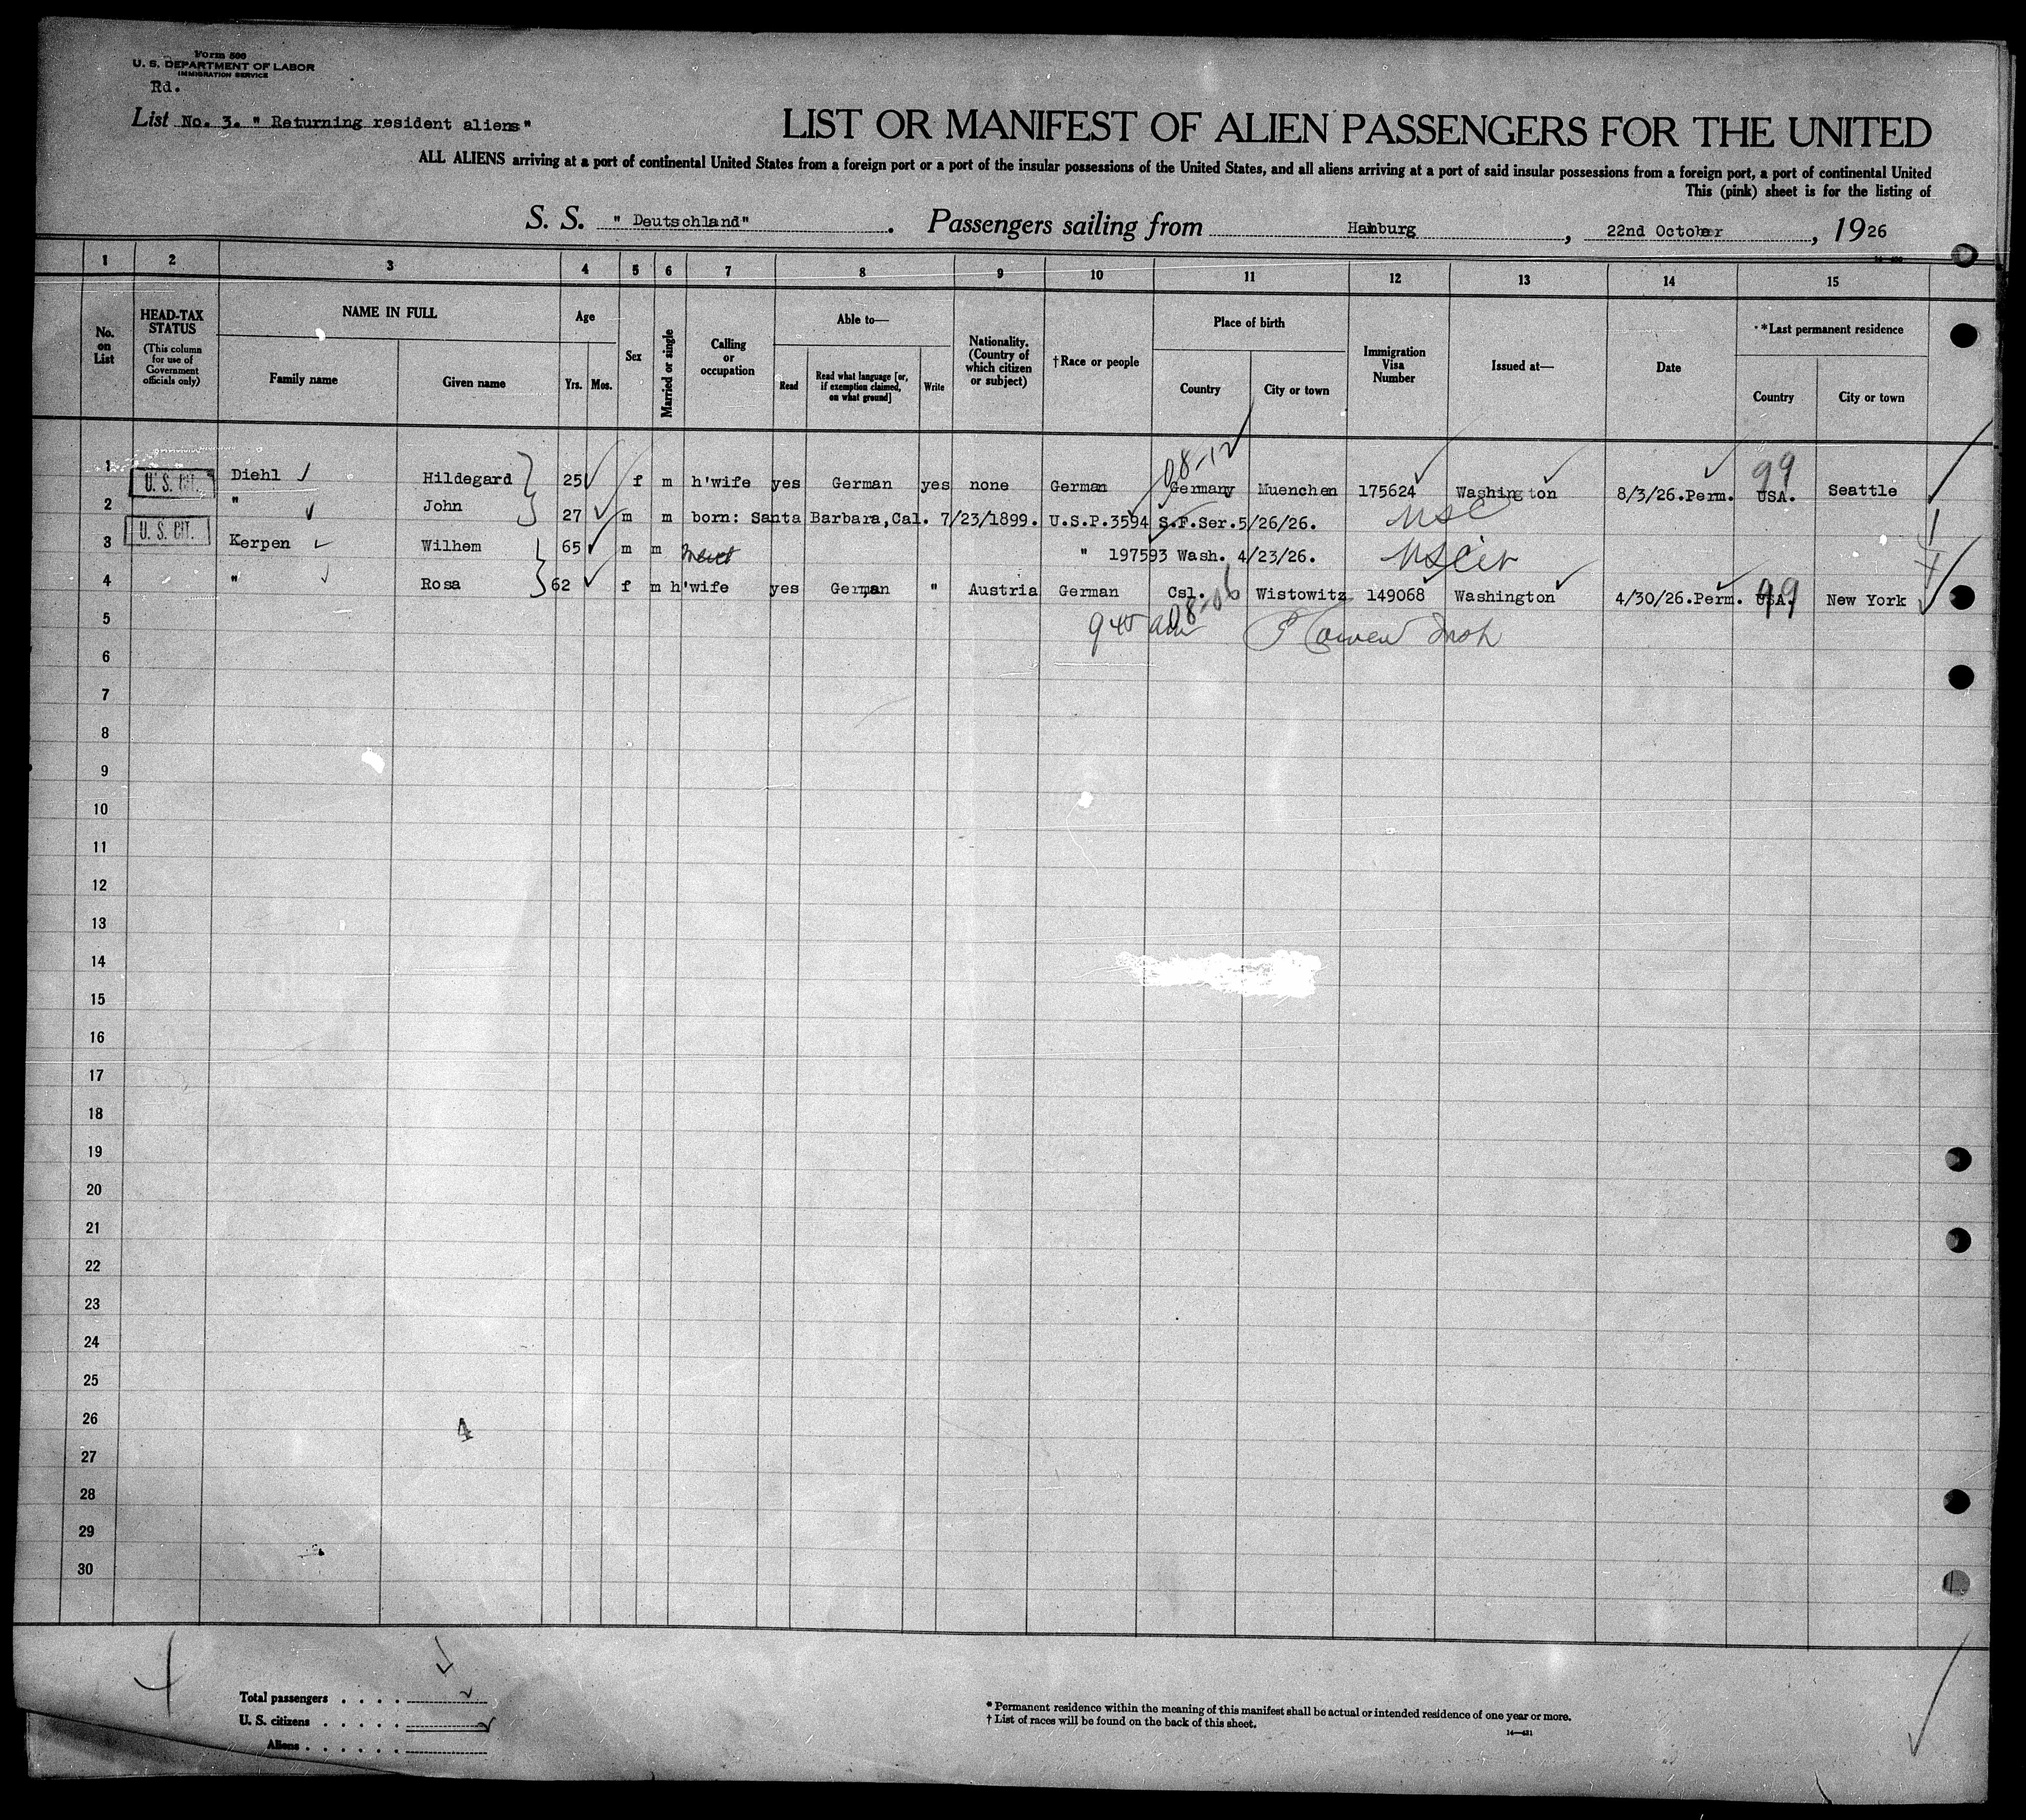 Form 500
U. S. DEPARTMENT OF LABOR
IMMIGRATION SERVICE
Rd.
List No. 3. " Returning resident aliens"
LIST OR MANIFEST OF ALIEN PASSENGERS FOR THE UNITED
ALL ALIENS arriving at a port of continental United States from a foreign port or a port of the insular possessions of the United States, and all aliens arriving at a port of said insular possessions from a foreign port, a port of continental United
This (pink) sheet is for the listing of
S. S. " Deutschland" . Passengers sailing from Hamburg , 22nd October , 1926
1 2 3 4 5 6 7 8 9 10 11 12 13 14 15
No. on List
HEAD-TAX STATUS
(This column for use of Government officials only)
NAME IN FULL
Family name
Given name
Age
Yrs. Mos.
Sex
Married or single
Calling or occupation
Able to—
Read
Read what language [or, if exemption claimed, on what ground]
Write
Nationality. (Country of which citizen or subject)
†Race or people
Place of birth
Country
City or town
Immigration Visa Number
Issued at—
Date
*Last permanent residence
Country
City or town
08-12 99
1 U. S. CIT. Diehl Hildegard 25 f m h'wife yes German yes none German Germany Muenchen 175624 Washington 8/3/26.Perm. USA. Seattle
2 " John 27 m m born: Santa Barbara,Cal. 7/23/1899. U.S.P.3594 S.F.Ser.5/26/26. USC
3 U. S. CIT. Kerpen Wilhem 65 m m " 197593 Wash. 4/23/26. US Cit
4 " Rosa 62 f m h'wife yes German " Austria German Csl. 08-06 Wistowitz 149068 Washington 4/30/26.Perm. USA. 99 New York
5
6
7
8
9
10
11
12
13
14
15
16
17
18
19
20
21
22
23
24
25
26
4
27
28
29
30
Total passengers . . . .
U. S. citizens . . . . .
Aliens . . . . . .
* Permanent residence within the meaning of this manifest shall be actual or intended residence of one year or more.
† List of races will be found on the back of this sheet.
14—431